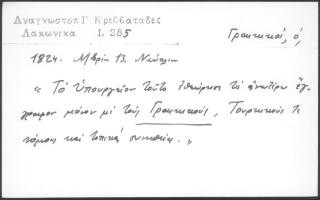 Αναγνωστοπ Γ Κρεββατάδες
Λακωνικα 1, 285
Γραικικός, ό,
1824. Μβρίου 13. Ναύπλιον
« Τό Ὑπουργεῖον τοῦτο ἐθεώρησε τό ἀνωτέρω ἔγ
γραφον μόνον μέ τούς Γραικικούς, Τουρκικούς τε
νόμους καί τοπικάς συνηθείας. »